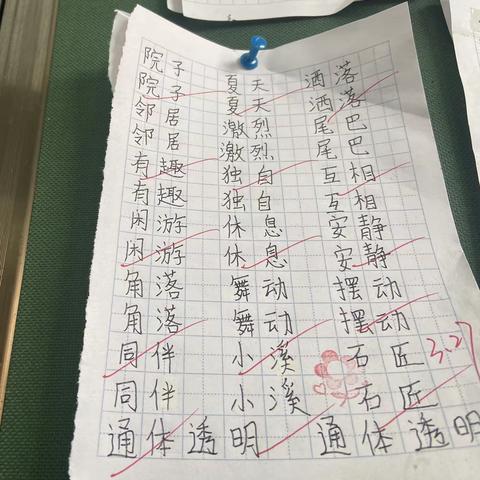 院子 夏天 洒落
院子 夏天 洒落
邻居 激烈 尾巴
邻居 激烈 尾巴
有趣 独自 互相
有趣 独自 互相
闲游 休息 安静
闲游 休息 安静
角落 舞动 摆动
角落 舞动 摆动
同伴 小溪 石匠
同伴 小溪 石匠
通体透明 通体透明
3.27